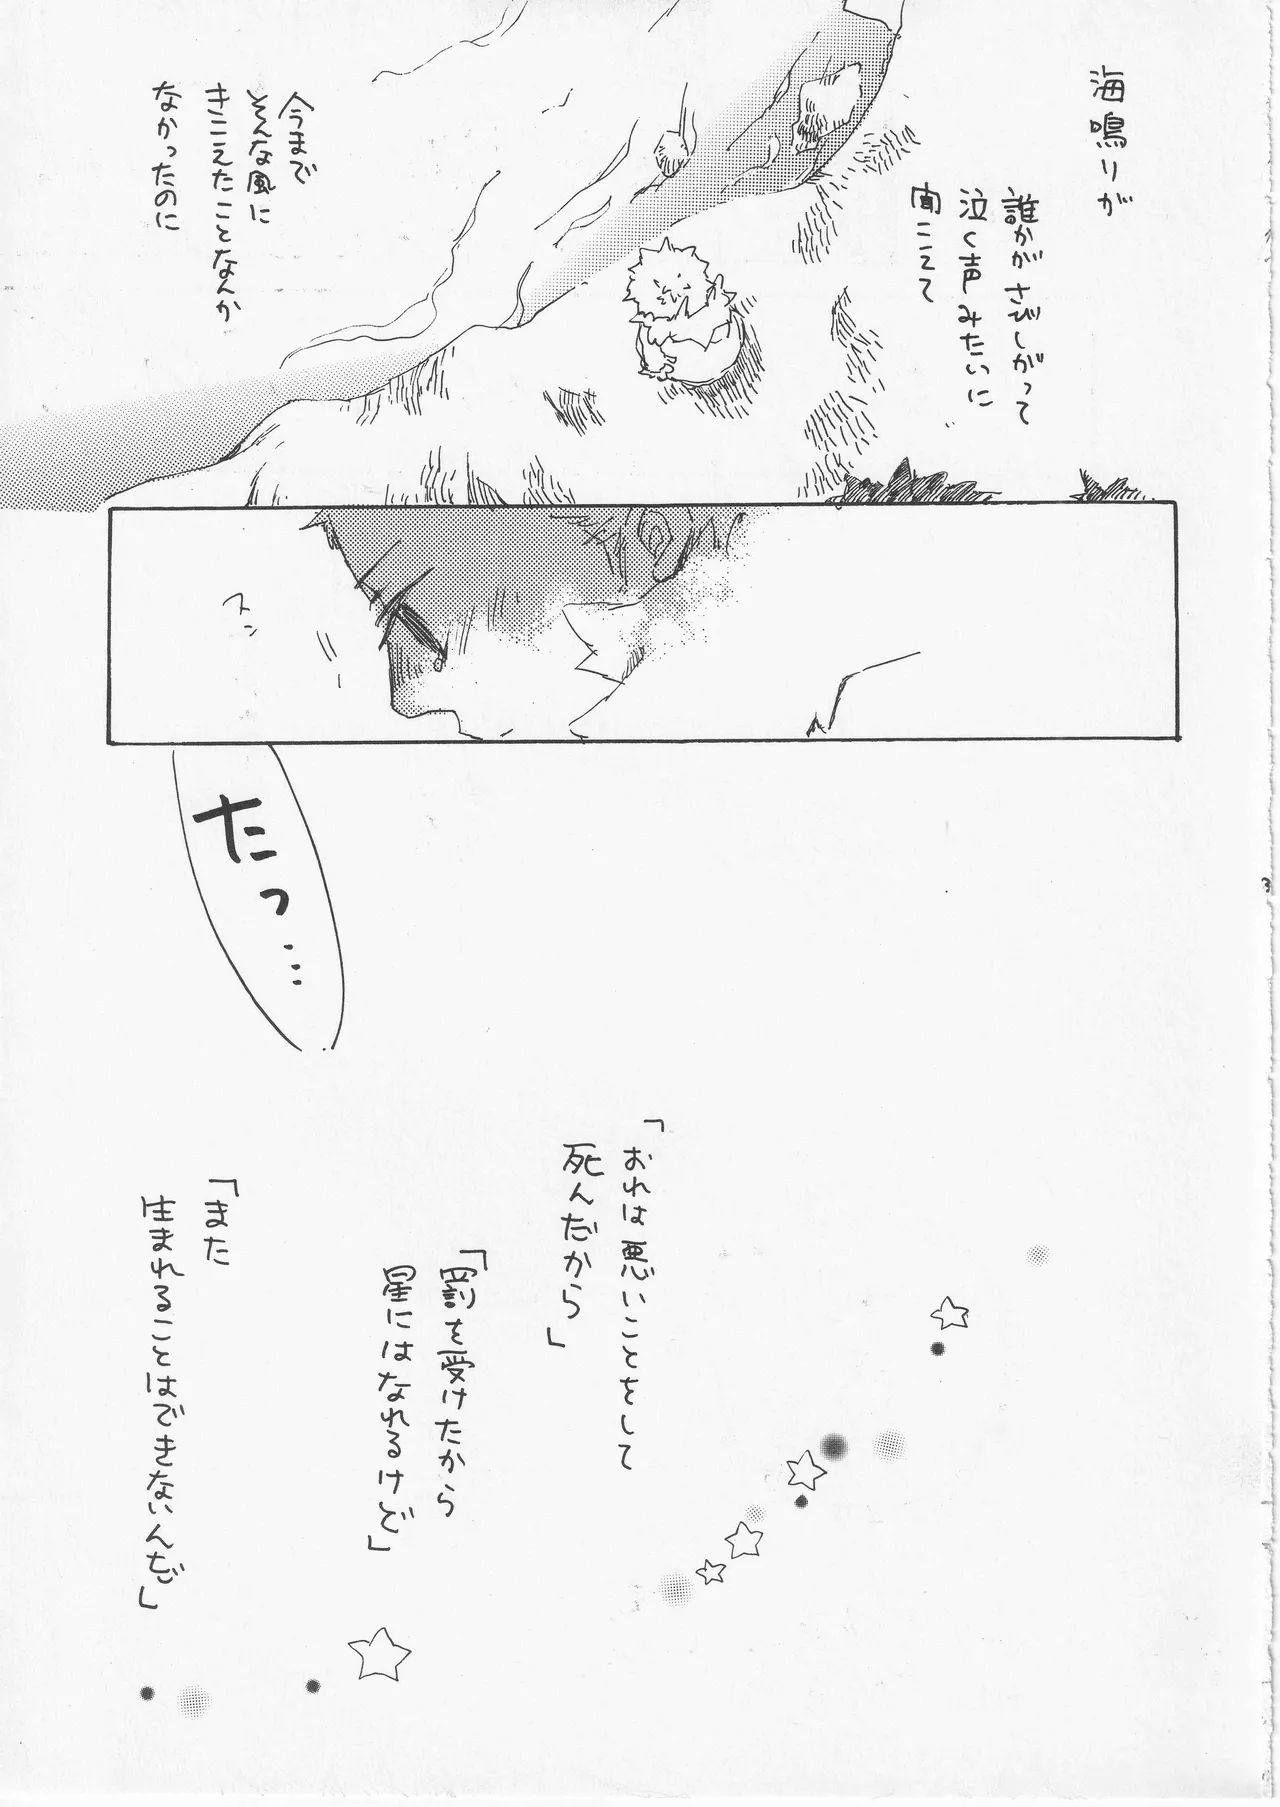 海鳴りが
誰かがさびしがって
泣く声みたいに
聞こえて
今まで
そんな風に
きこえたことなんか
なかったのに
スン
たっ…
「おれは悪いことをして
死んだから」
「罰を受けたから
星にはなれるけど」
「また
生まれることはできないんだ」